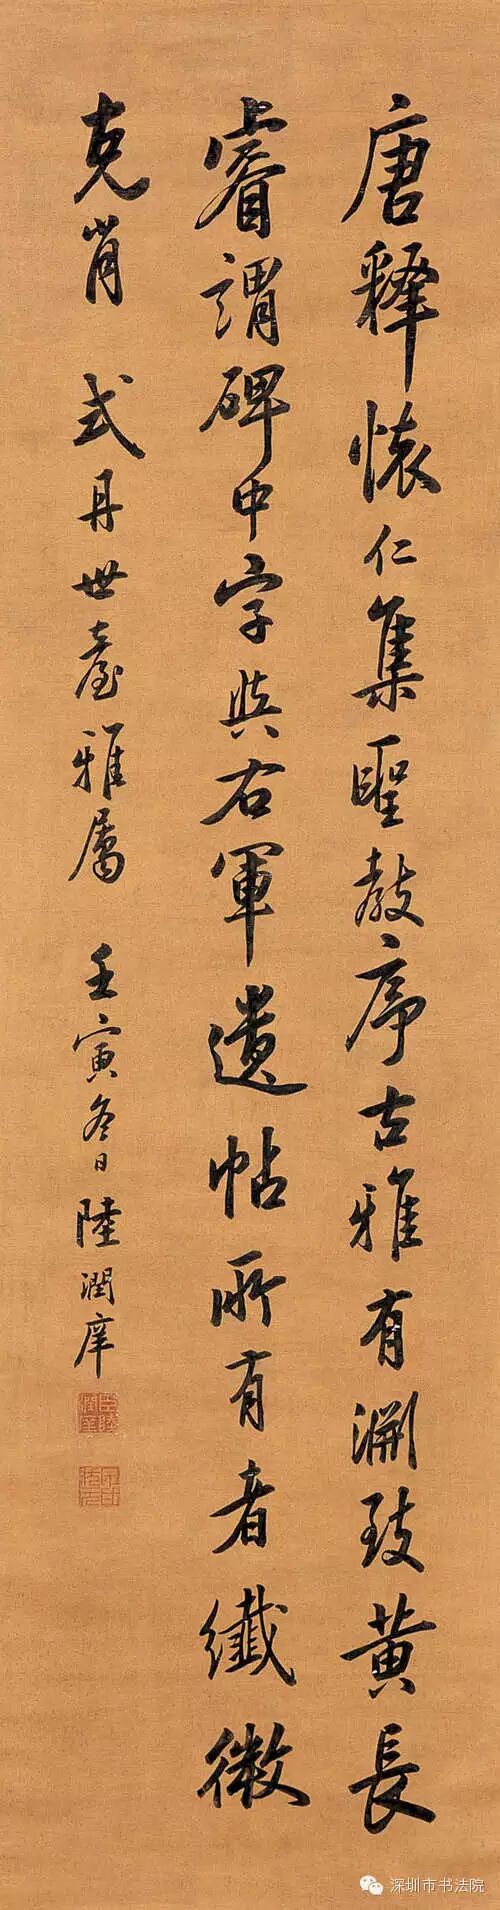 唐釋懷仁集聖教序古雅有淵致黄長
睿謂碑中字與右軍遺帖所有者纖微
克肖 式丹世臺雅屬 壬寅冬日 陸潤庠
深圳市书法院